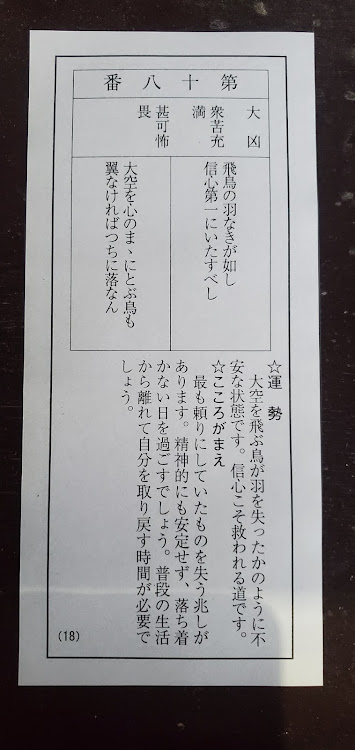 第十八番
大凶
衆苦充満
甚可怖畏
飛鳥の羽なきが如し
信心第一にいたすべし
大空を心のまゝにとぶ鳥も
翼なければつちに落なん
☆運勢
大空を飛ぶ鳥が羽を失ったかのように不
安な状態です。信心こそ救われる道です。
☆こころがまえ
最も頼りにしていたものを失う兆しが
あります。精神的にも安定せず、落ち着
かない日を過ごすでしょう。普段の生活
から離れて自分を取り戻す時間が必要で
しょう。
(18)